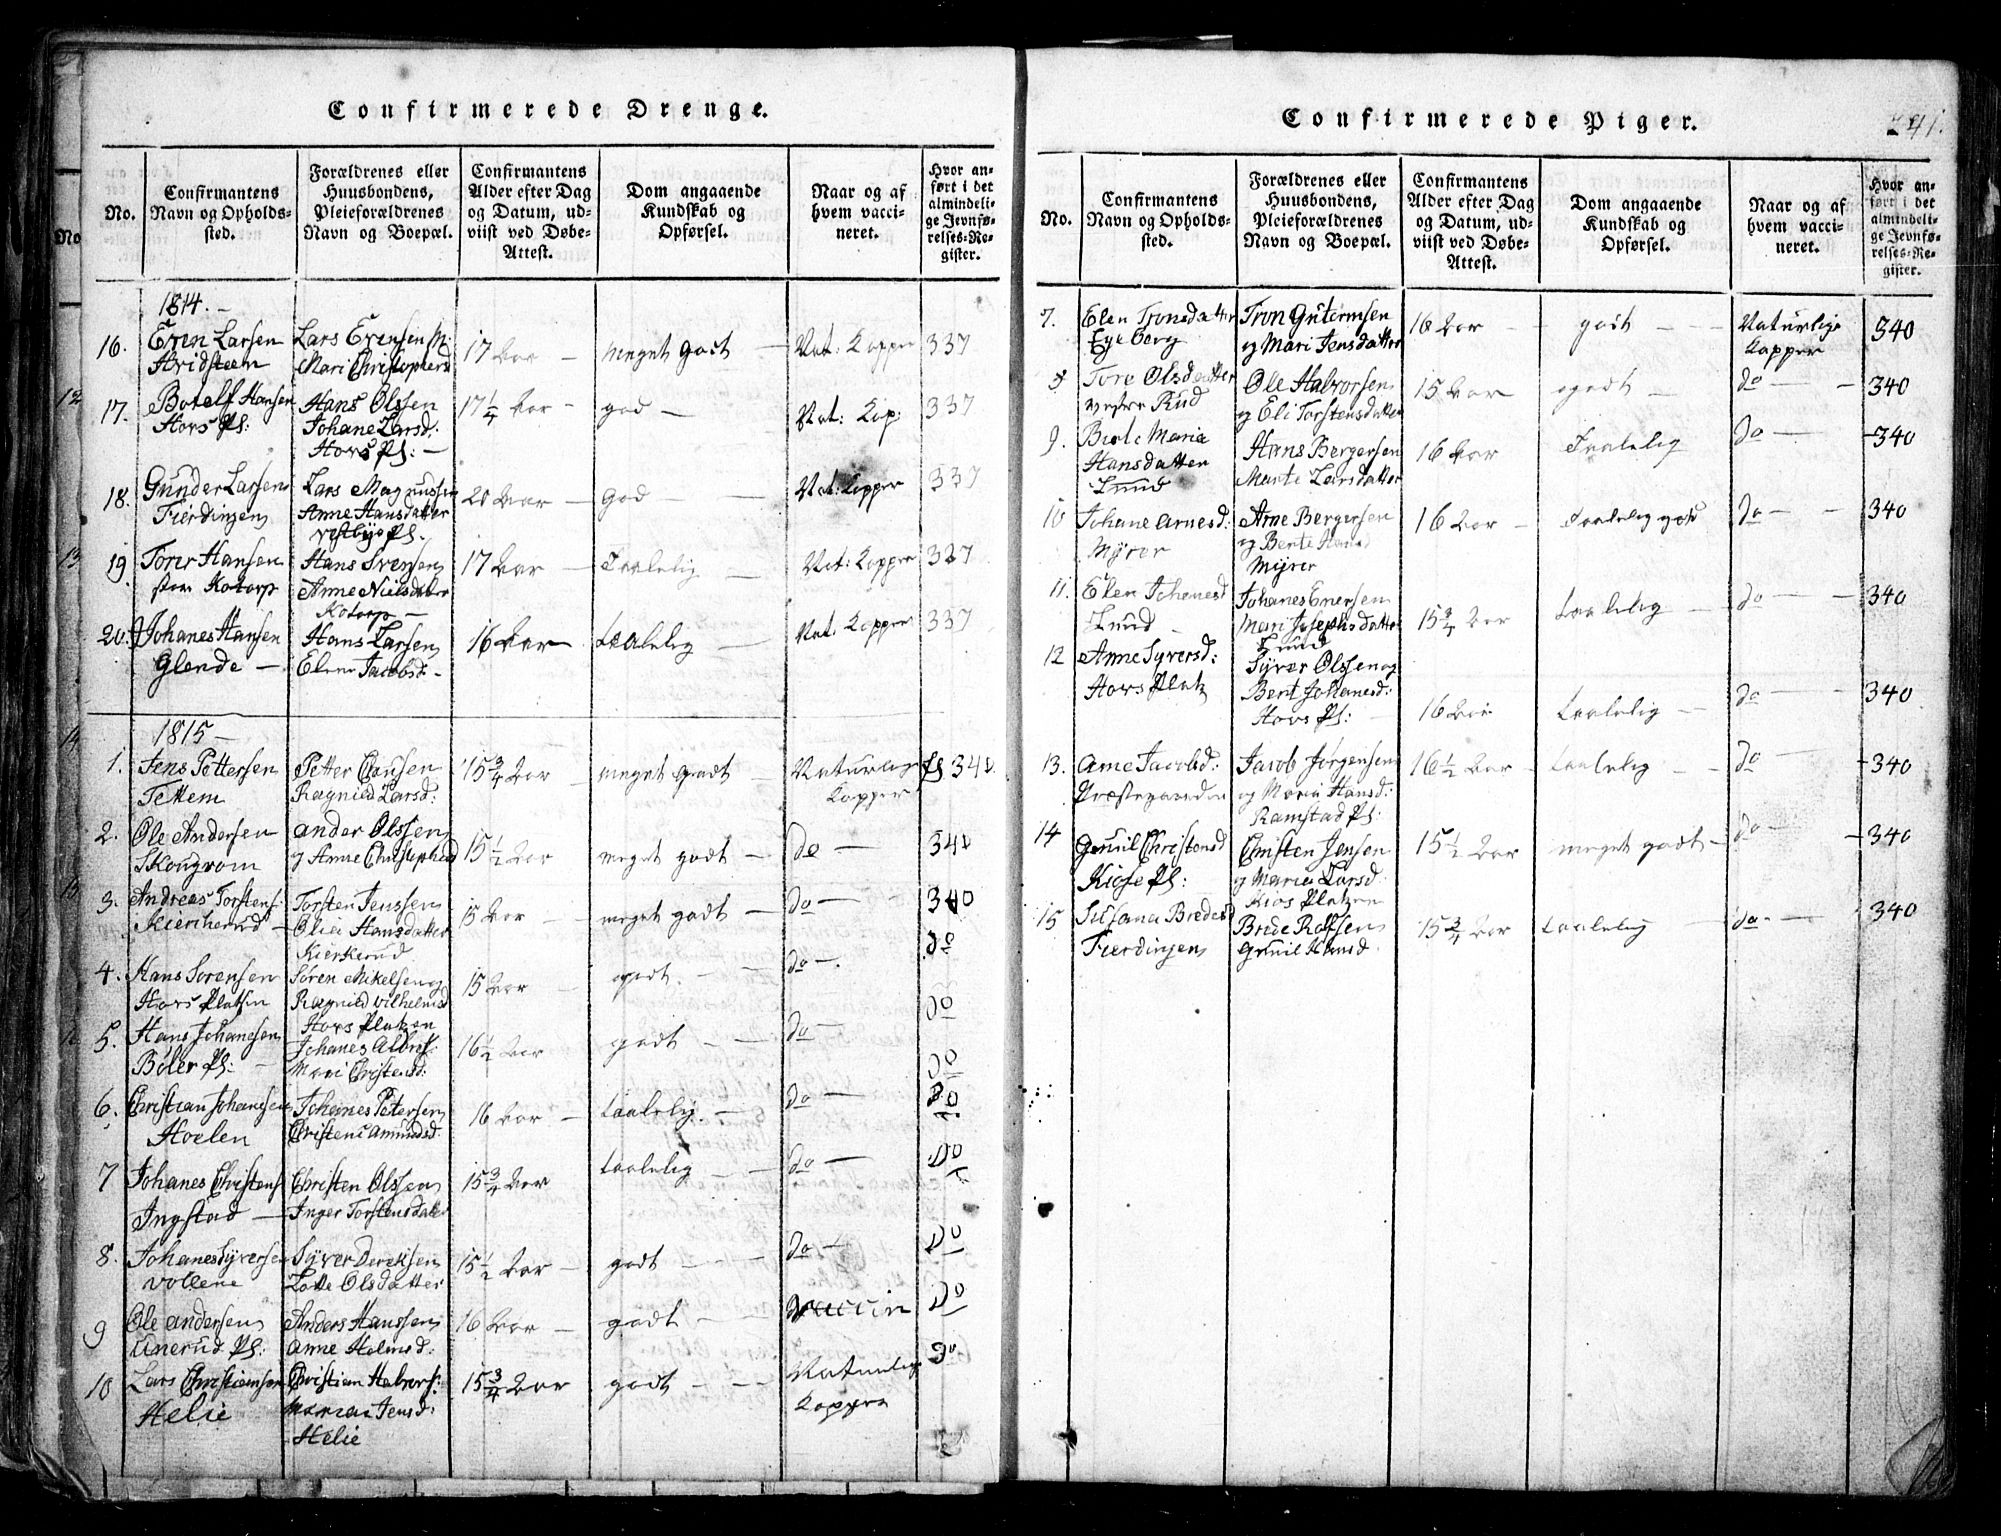 Confirmerede Drenge.
No. Confirmantens Navn og Opholds-sted. Forældrenes eller Huusbondens, Pleieforældrenes Navn og Boepæl. Confirmantens Alder efter Dag og Datum, ud-viist ved Døbe-Attest. Dom angaaende Kundskab og Opførsel. Naar og af hvem vacci-neret. Hvor an-ført i det almindeli-ge Jevnfø-relses-Re-gister.
1814.
16. Even Larsen Lars Evensen 17 Aar meget godt Nat: Kopper 337
Hvidsteen Mari Christophersd
17. Botolf Hansen Hans Olssen 17 1/4 Aar god Nat: Kop: 337
Hovs Pl: Johane Larsd:
Hovs Pl:
18. Gunder Larsen Lars Magnussen 20 Aar God Nat: Kopper 337
Fierdingen Anne Hansdatter
Vestbye Pl.
19 Torer Hansen Hans Svensen 17 Aar Taalelig Nat: Kopper 337
Kotorp Anne Nielsdatter
Kotorp
20. Johanes Hansen Hans Larsen 16 Aar taalelig Nat: Kopper 337
Glende Elene Jacobsd
1815
1. Jens Pettersen Petter Clausen 15 3/4 Aar meget godt Naturlig 340
Tettem Ragnild Larsd: Kopper
2. Ole Andersen Ander Olssen 15 1/2 Aar meget godt do 340
Skougrom og Anne Christophersd
3. Andreas Torstens: Torsten Jenssen 15 Aar meget godt do 340
Kierkerud Olia Hansdatter
Kierkerud Do
4. Hans Sørensen Søren Mikelsen og 15 Aar godt do
Hovs Platsen Ragnild Vilhelmsd Do
Hovs Platzen
5. Hans Johanesen Johanes Albris: 16 1/2 Aar godt do
Bøler Pl: Mari Christensd: Do
6. Christian Johanesen Johanes Petersen 16 Aar taalelig do Do
Hoelen Christene Amundsd:
7 Johanes Christens Christen Olssen 15 3/4 Aar taalelig do Do
Ingstad Inger Torstensdatter
8. Johanes Syversen Syver Dereksen 15 1/2 Aar godt do Do
Vollene Lotte Olsdatter
9 Ole Andersen Anders Hanssen 16 Aar godt vaccin Do
Unerud Pl: Anne Holmsd:
10 Lars Christiansen Christian Halvors: 15 3/4 Aar godt Naturlig Do
Helie Maria Jensd: Kopper
Helie
Confirmerede Piger.
241.
No. Confirmantens Navn og Opholds-sted. Forældrenes eller Huusbondens, Pleieforældrenes Navn og Boepæl. Confirmantens Alder efter Dag og Datum, ud-viist ved Døbe-Attest. Dom angaaende Kundskab og Opførsel. Naar og af hvem vacci-neret. Hvor an-ført i det almindeli-ge Jevnfø-relses-Re-gister.
7. Elen Tronsdatter Tron Gutormsen 16 Aar godt Naturlige 340
Eye berg og Mari Jensdatter Kopper
8 Tore Olsdatter Ole Halvorsen 15 Aar godt do 340
vestre Rud og Eli Torstensdatter
9. Birte Maria Hans Bergersen 16 Aar Taalelig do 340
Hansdatter Marte Larsdatter
Lund
10 Johane Arnesd: Arne Bergersen 16 Aar Taalelig godt do 340
Myrer og Bente Hans
Myrer
11. Elen Johanesd Johanes Enersen 15 3/4 Aar taalelig do 340
Lund Mari Josephsdatter
Lund
12 Anne Syversd: Syver Olssen og
Hovs Platz Bent Johanesd: 16 Aar taalelig do 340
Hovs Pl:
13. Anne Jacobsd: Jacob Jørgensen 16 1/2 Aar taalelig do 340
Præstegaarden og Maria Hansd:
Ramstad Pl:
14 Gunil Christensd Christen Jensen 15 1/2 Aar meget godt do 340
Kiose Pl: og Maria Larsd.
Kios Platzen
15 Susana Bredesd Brede Rolfsen 15 3/4 Aar taalelig do 340
Fierdingen Gunil Hansd.